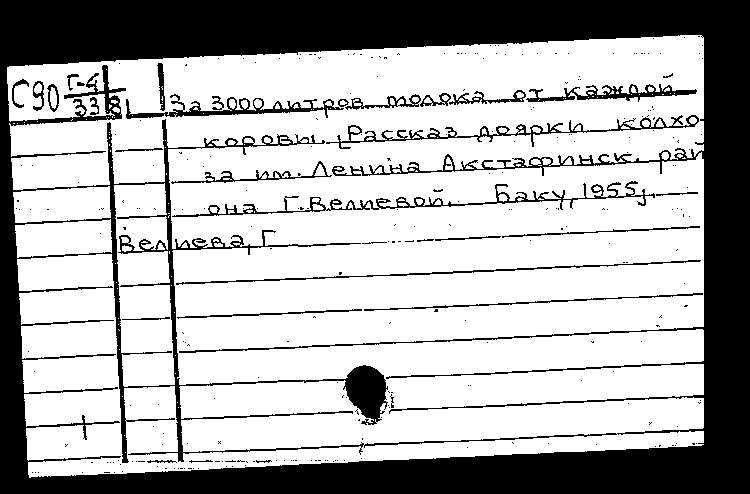 С90 Г-4
3381
За 3000 литров молока от каждой
коровы. [Рассказ доярки колхо-
за им. Ленина Акстафинск. рай
она Г. Велиевой. Баку, 1955].
Велиева, Г